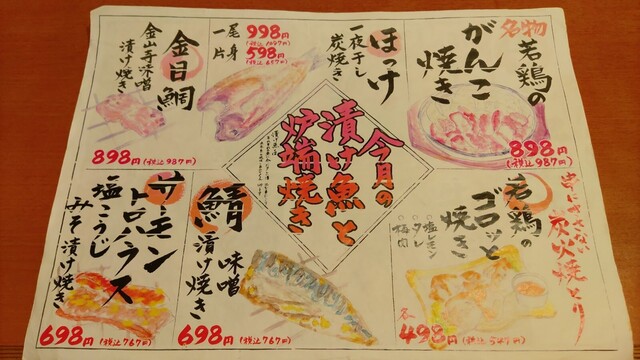 名物
若鶏の
がんこ
焼き
898円
(税込987円)
ほっけ
一夜干し
炭焼き
一尾 998円
(税込1097円)
片身 598円
(税込657円)
金目鯛
金山寺味噌
漬け焼き
898円(税込987円)
今月の
漬け魚と
炉端焼き
串にささない
炭火焼とり
若鶏の
ゴロッと
焼き
塩レモン
タレ
梅肉
各
498円(税込547円)
鯖
味噌
漬け焼き
698円(税込767円)
サーモン
トロハラス
塩こうじ
みそ漬け焼き
698円(税込767円)